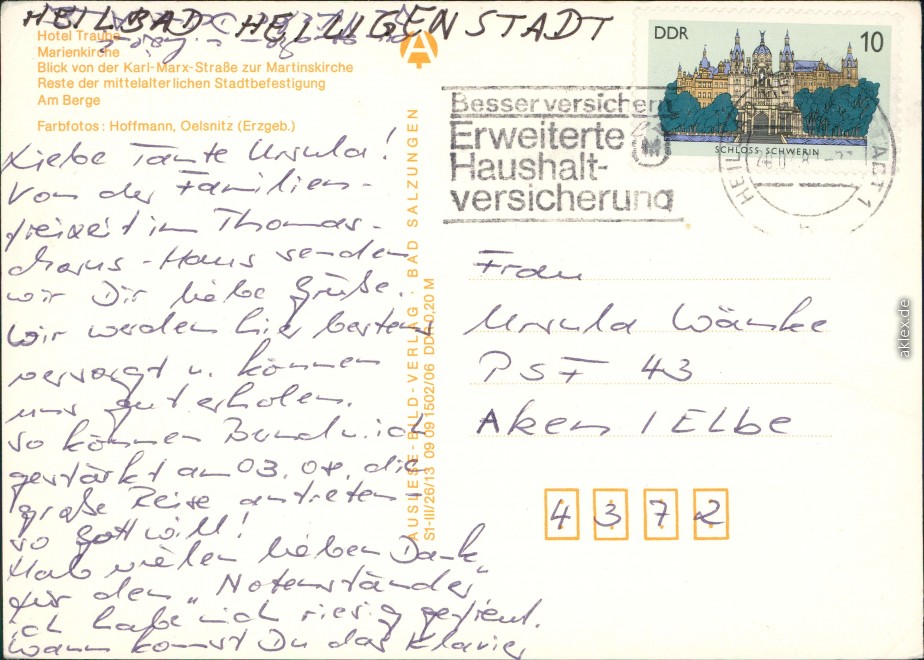 HEILBAD HEILIGENSTADT
Hotel Traube
Marienkirche
Blick von der Karl-Marx-Straße zur Martinskirche
Reste der mittelalterlichen Stadtbefestigung
Am Berge
Farbfotos: Hoffmann, Oelsnitz (Erzgeb.)
Liebe Tante Ursula!
Von der Familien-
freizeit im Thomas-
Morus-Haus senden
wir Dir liebe Grüße.
Wir werden hier bestens
versorgt u. können
uns gut erholen.
So können Bernd u. ich
gestärkt am 03. 08. die
große Reise antreten-
so Gott will!
Hab vielen lieben Dank
für den "Notenständer"
ich habe mich riesig gefreut.
Wann kommst Du das Klavier
AUSLESE-BILD-VERLAG · BAD SALZUNGEN
S1-III/26/13 09 09 1502/06 DDR 0,20 M
Besser versichern
Erweiterte
Haushalt-
versicherung
DDR 10
SCHLOSS SCHWERIN
Frau
Ursula Wänke
PSF 43
Aken / Elbe
4372
aklex.de